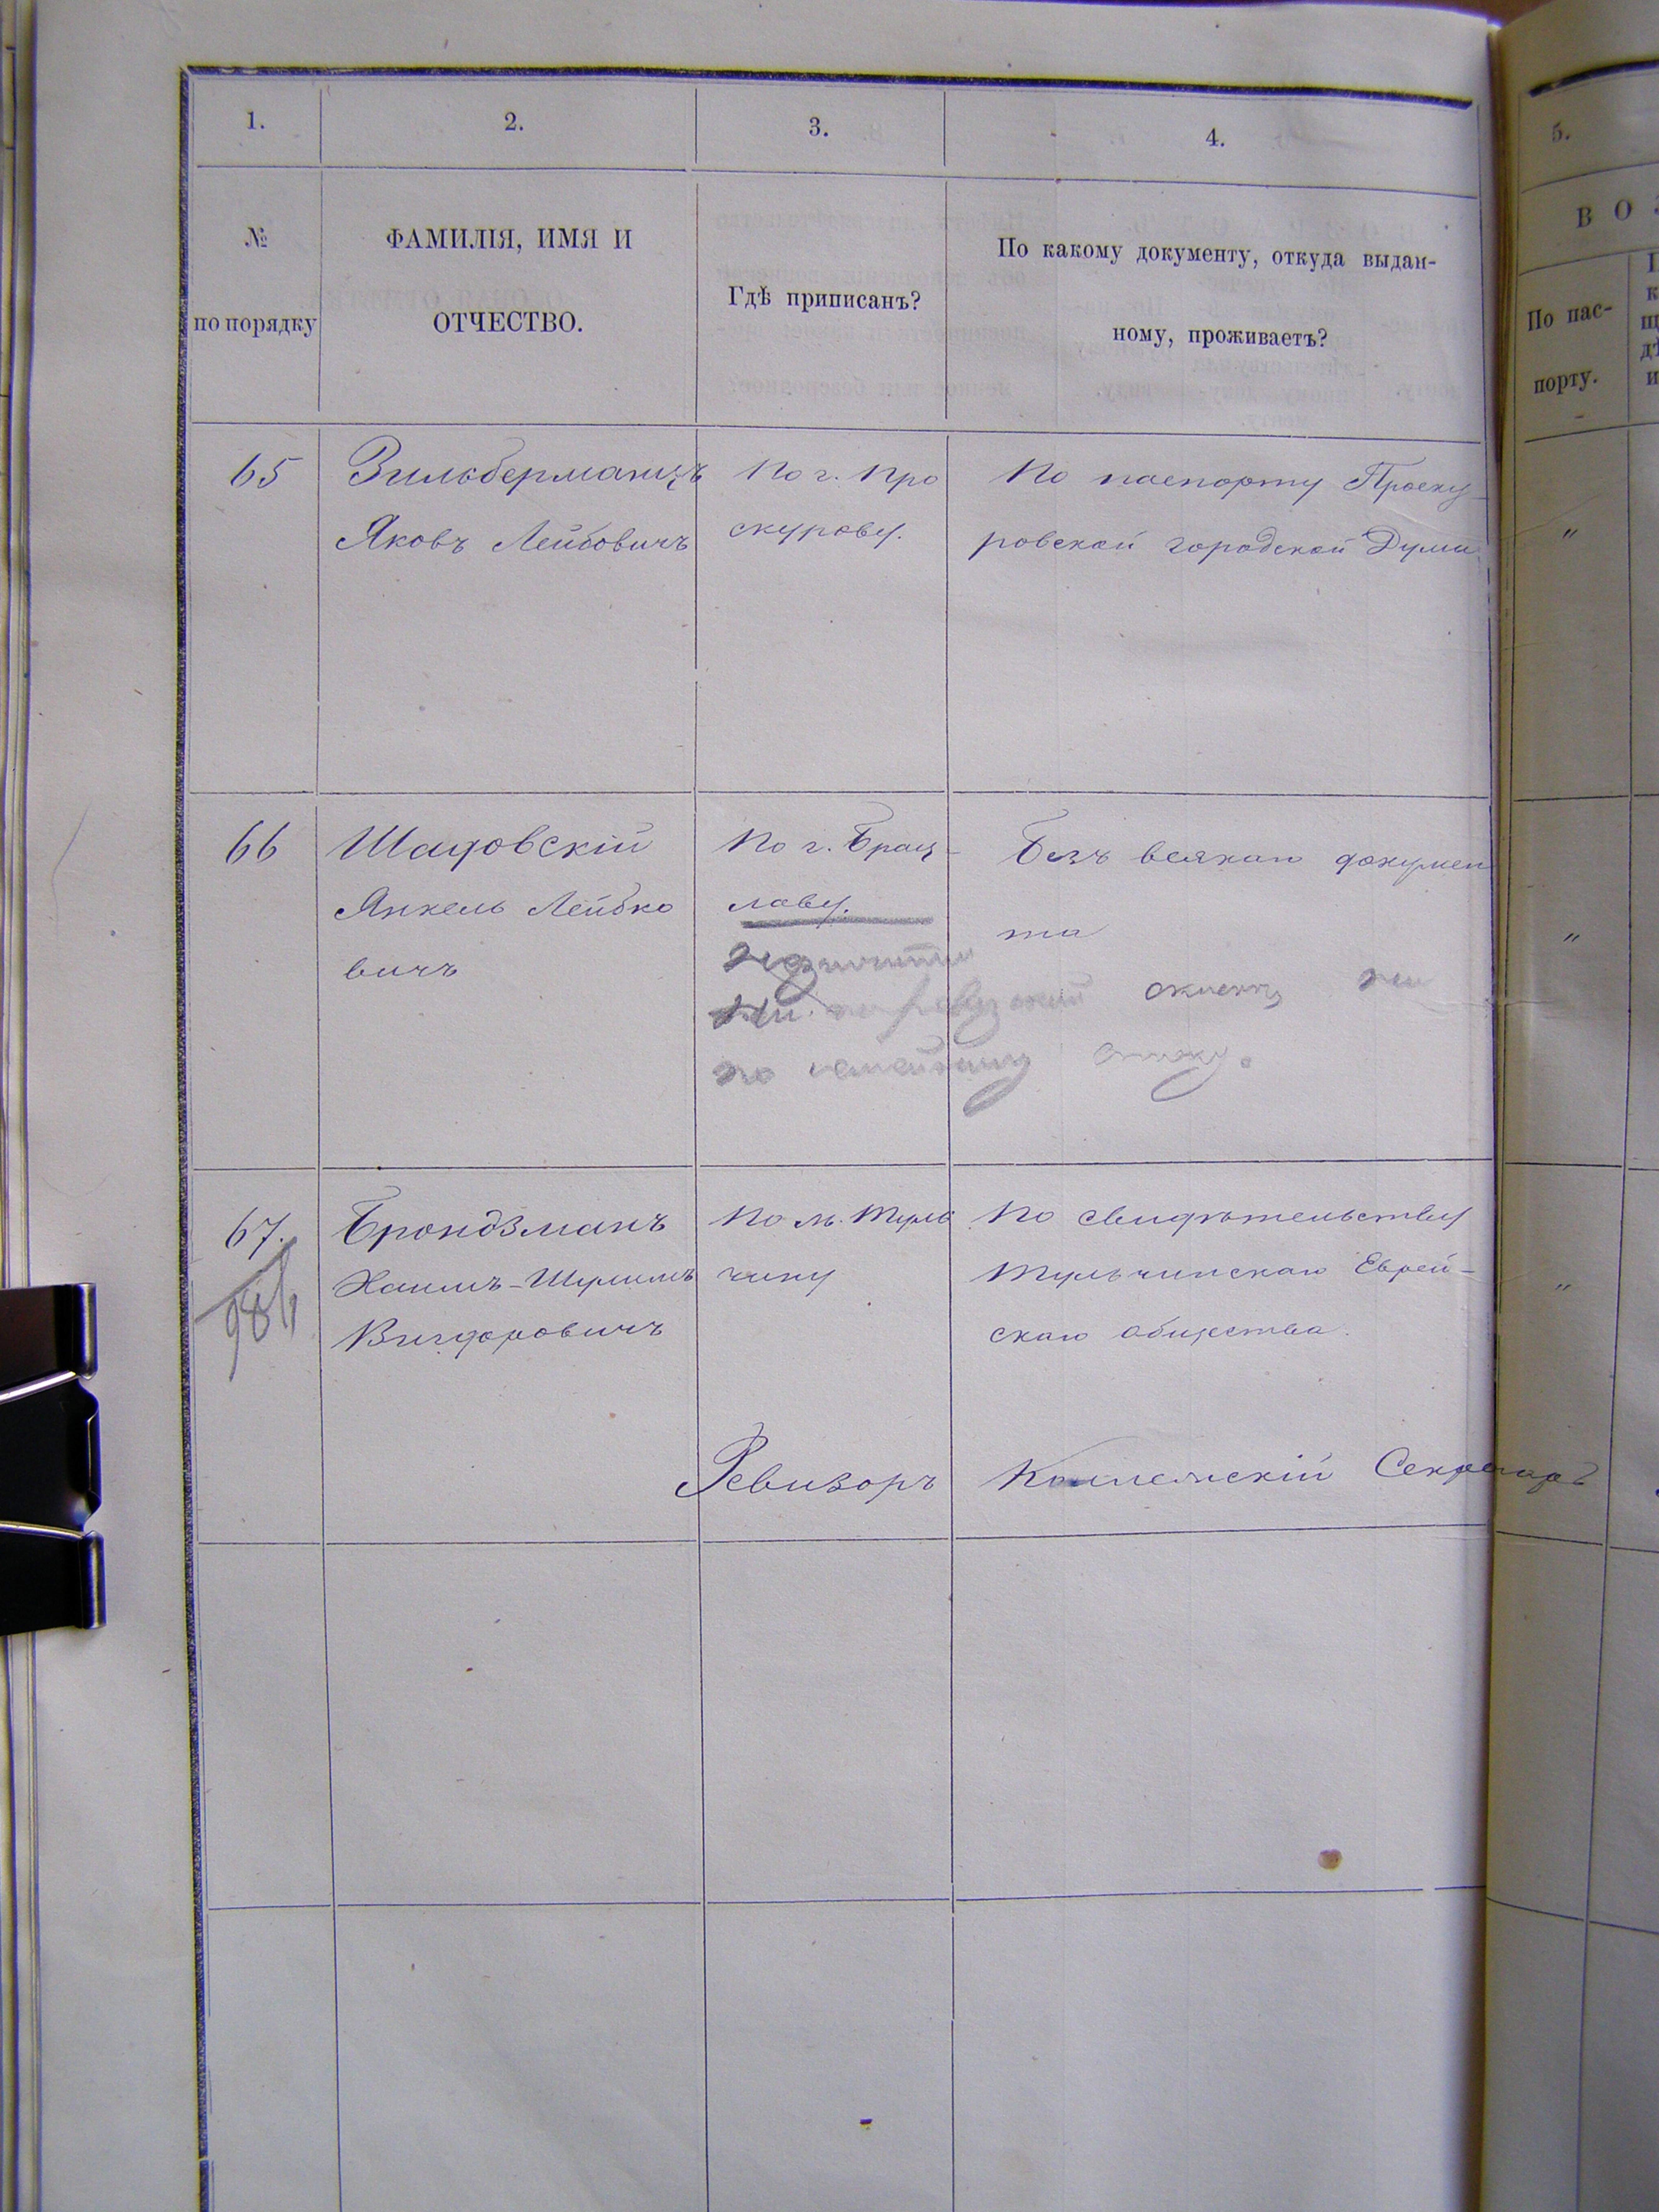 1.
2.
3.
4.
5.
№
по порядку
ФАМИЛІЯ, ИМЯ И
ОТЧЕСТВО.
Гдѣ приписанъ?
По какому документу, откуда выдан-
ному, проживаетъ?
ВОЗ
По пас-
порту.
65
Зильберманъ
Яковъ Лейбовичъ
По г. Про
скурову.
По паспорту Проску-
ровской городской Думы
"
66
Шадовскій
Янкель Лейбко
вичъ
По г. Брац-
лаву.
Безъ всякаго докумен
та
"
не
ни по ревизской
ни
по семейному списку.
67.
984
Брондзманъ
Хаимъ-Шулимъ
Вигдоровичъ
По м. Туль
чину
По свидѣтельству
Тульчинскаго Еврей-
скаго общества.
"
Ревизоръ
Коллежскій Секретарь